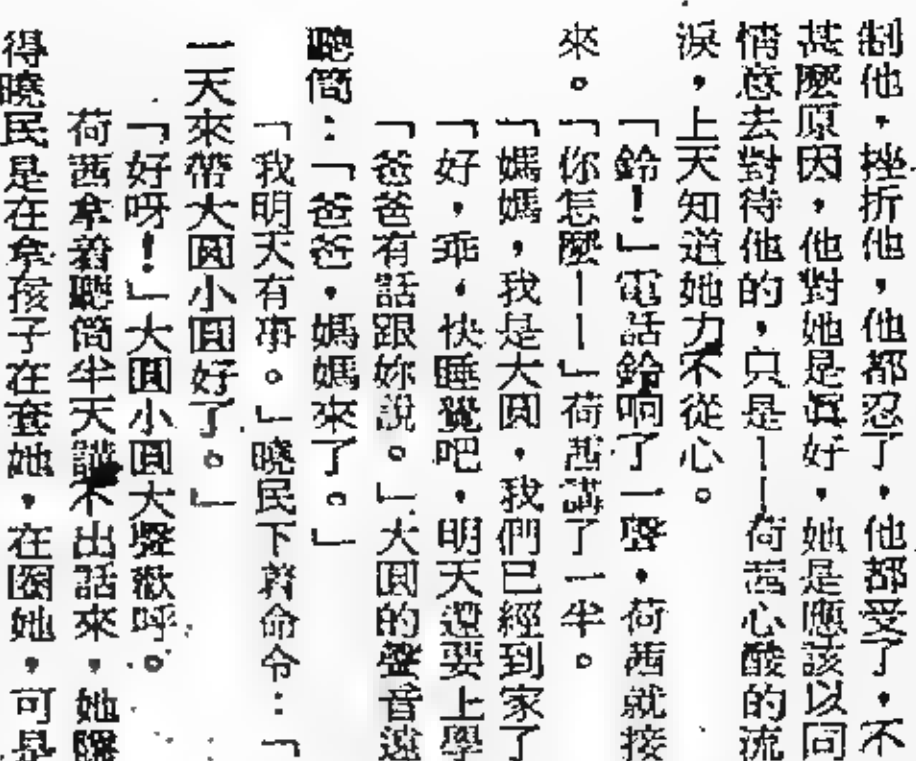 制他，挫折他，他都忍了，他都受了，不
甚麼原因，他對她是眞好，她是應該以同
情意去對待他的，只是——荷茜心酸的流
淚，上天知道她力不從心。
「鈴！」電話鈴响了一聲，荷茜就接
來。「你怎麼——」荷茜講了一半。
「媽媽，我是大圓，我們已經到家了
「好，乖，快睡覺吧，明天還要上學
「爸爸有話跟妳說。」大圓的聲音遠
聽筒：「爸爸，媽媽來了。」
「我明天有事。」曉民下着命令：「
一天來帶大圓小圓好了。」
「好呀！」大圓小圓大聲歡呼。
荷茜拿着聽筒半天講不出話來，她
得曉民是在拿孩子在套她，在圈她，可是